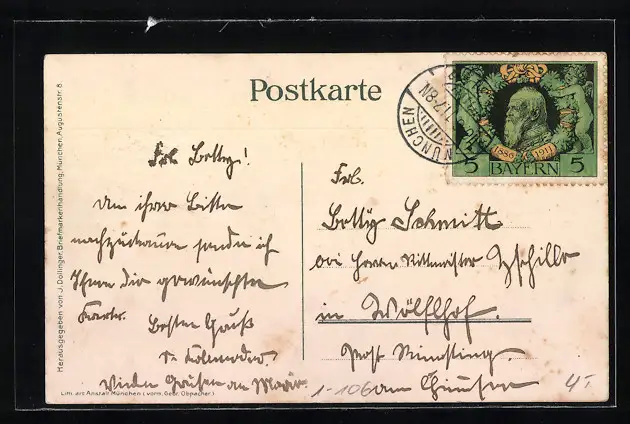 Postkarte
MÜNCHEN
1886 1911
5 BAYERN 5
Herausgegeben von J. Dollinger, Briefmarkenhandlung, München, Augustenstr. 8
Frl. Betty!
Um ihrer Bitte
nachzukommen sende ich
Ihnen die gewünschte
Karte.
Besten Gruß
Viele Grüsse an Marie
Frl.
Betty Schmitt
bei Herrn Rittmeister Zschille
in Wölflhof.
Post
am
1-106
Lith. art. Anstalt München (vorm. Gebr. Obpacher.)